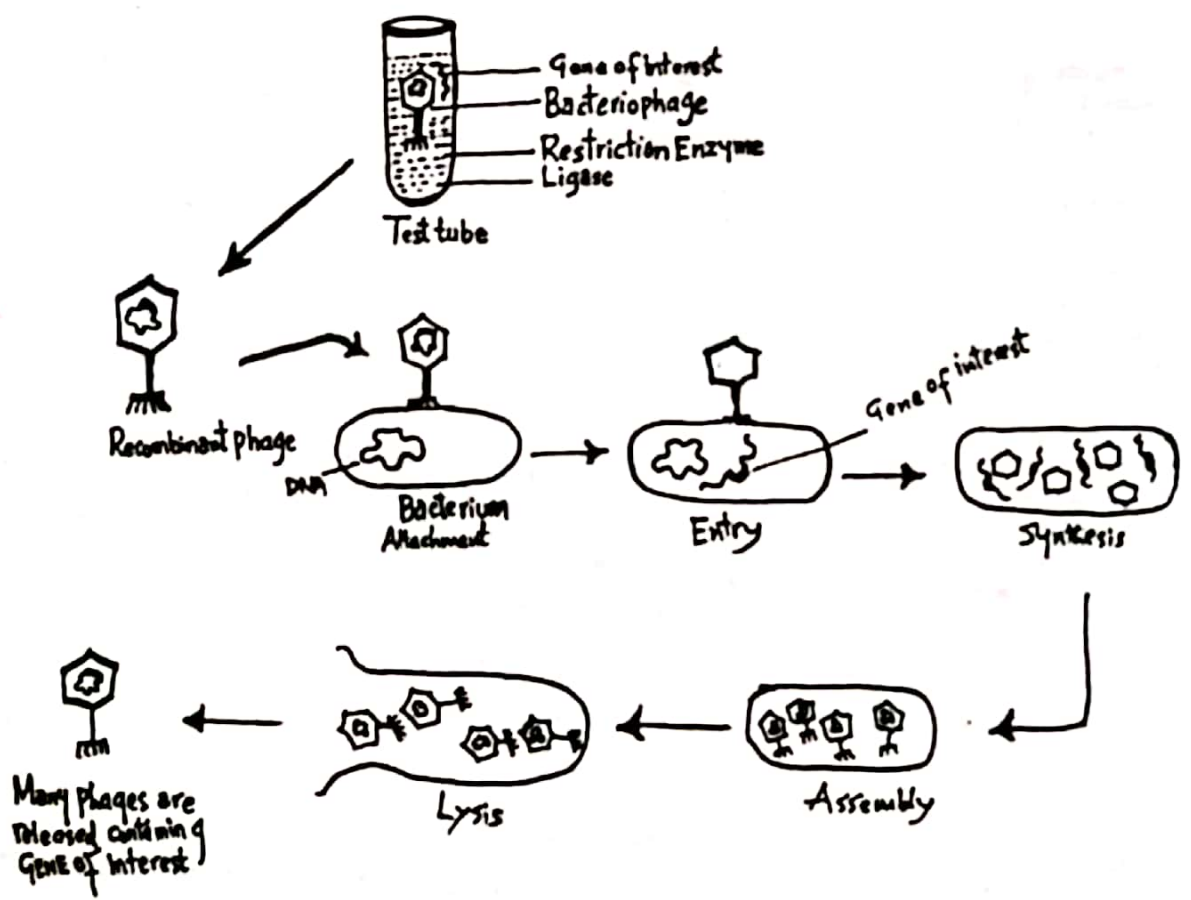 Gene of interest
Bacteriophage
Restriction Enzyme
Ligase
Test tube
Recombinant phage
DNA
Bacterium
Attachment
Gene of interest
Entry
Synthesis
Assembly
Lysis
Many phages are
released containing
GENE OF Interest